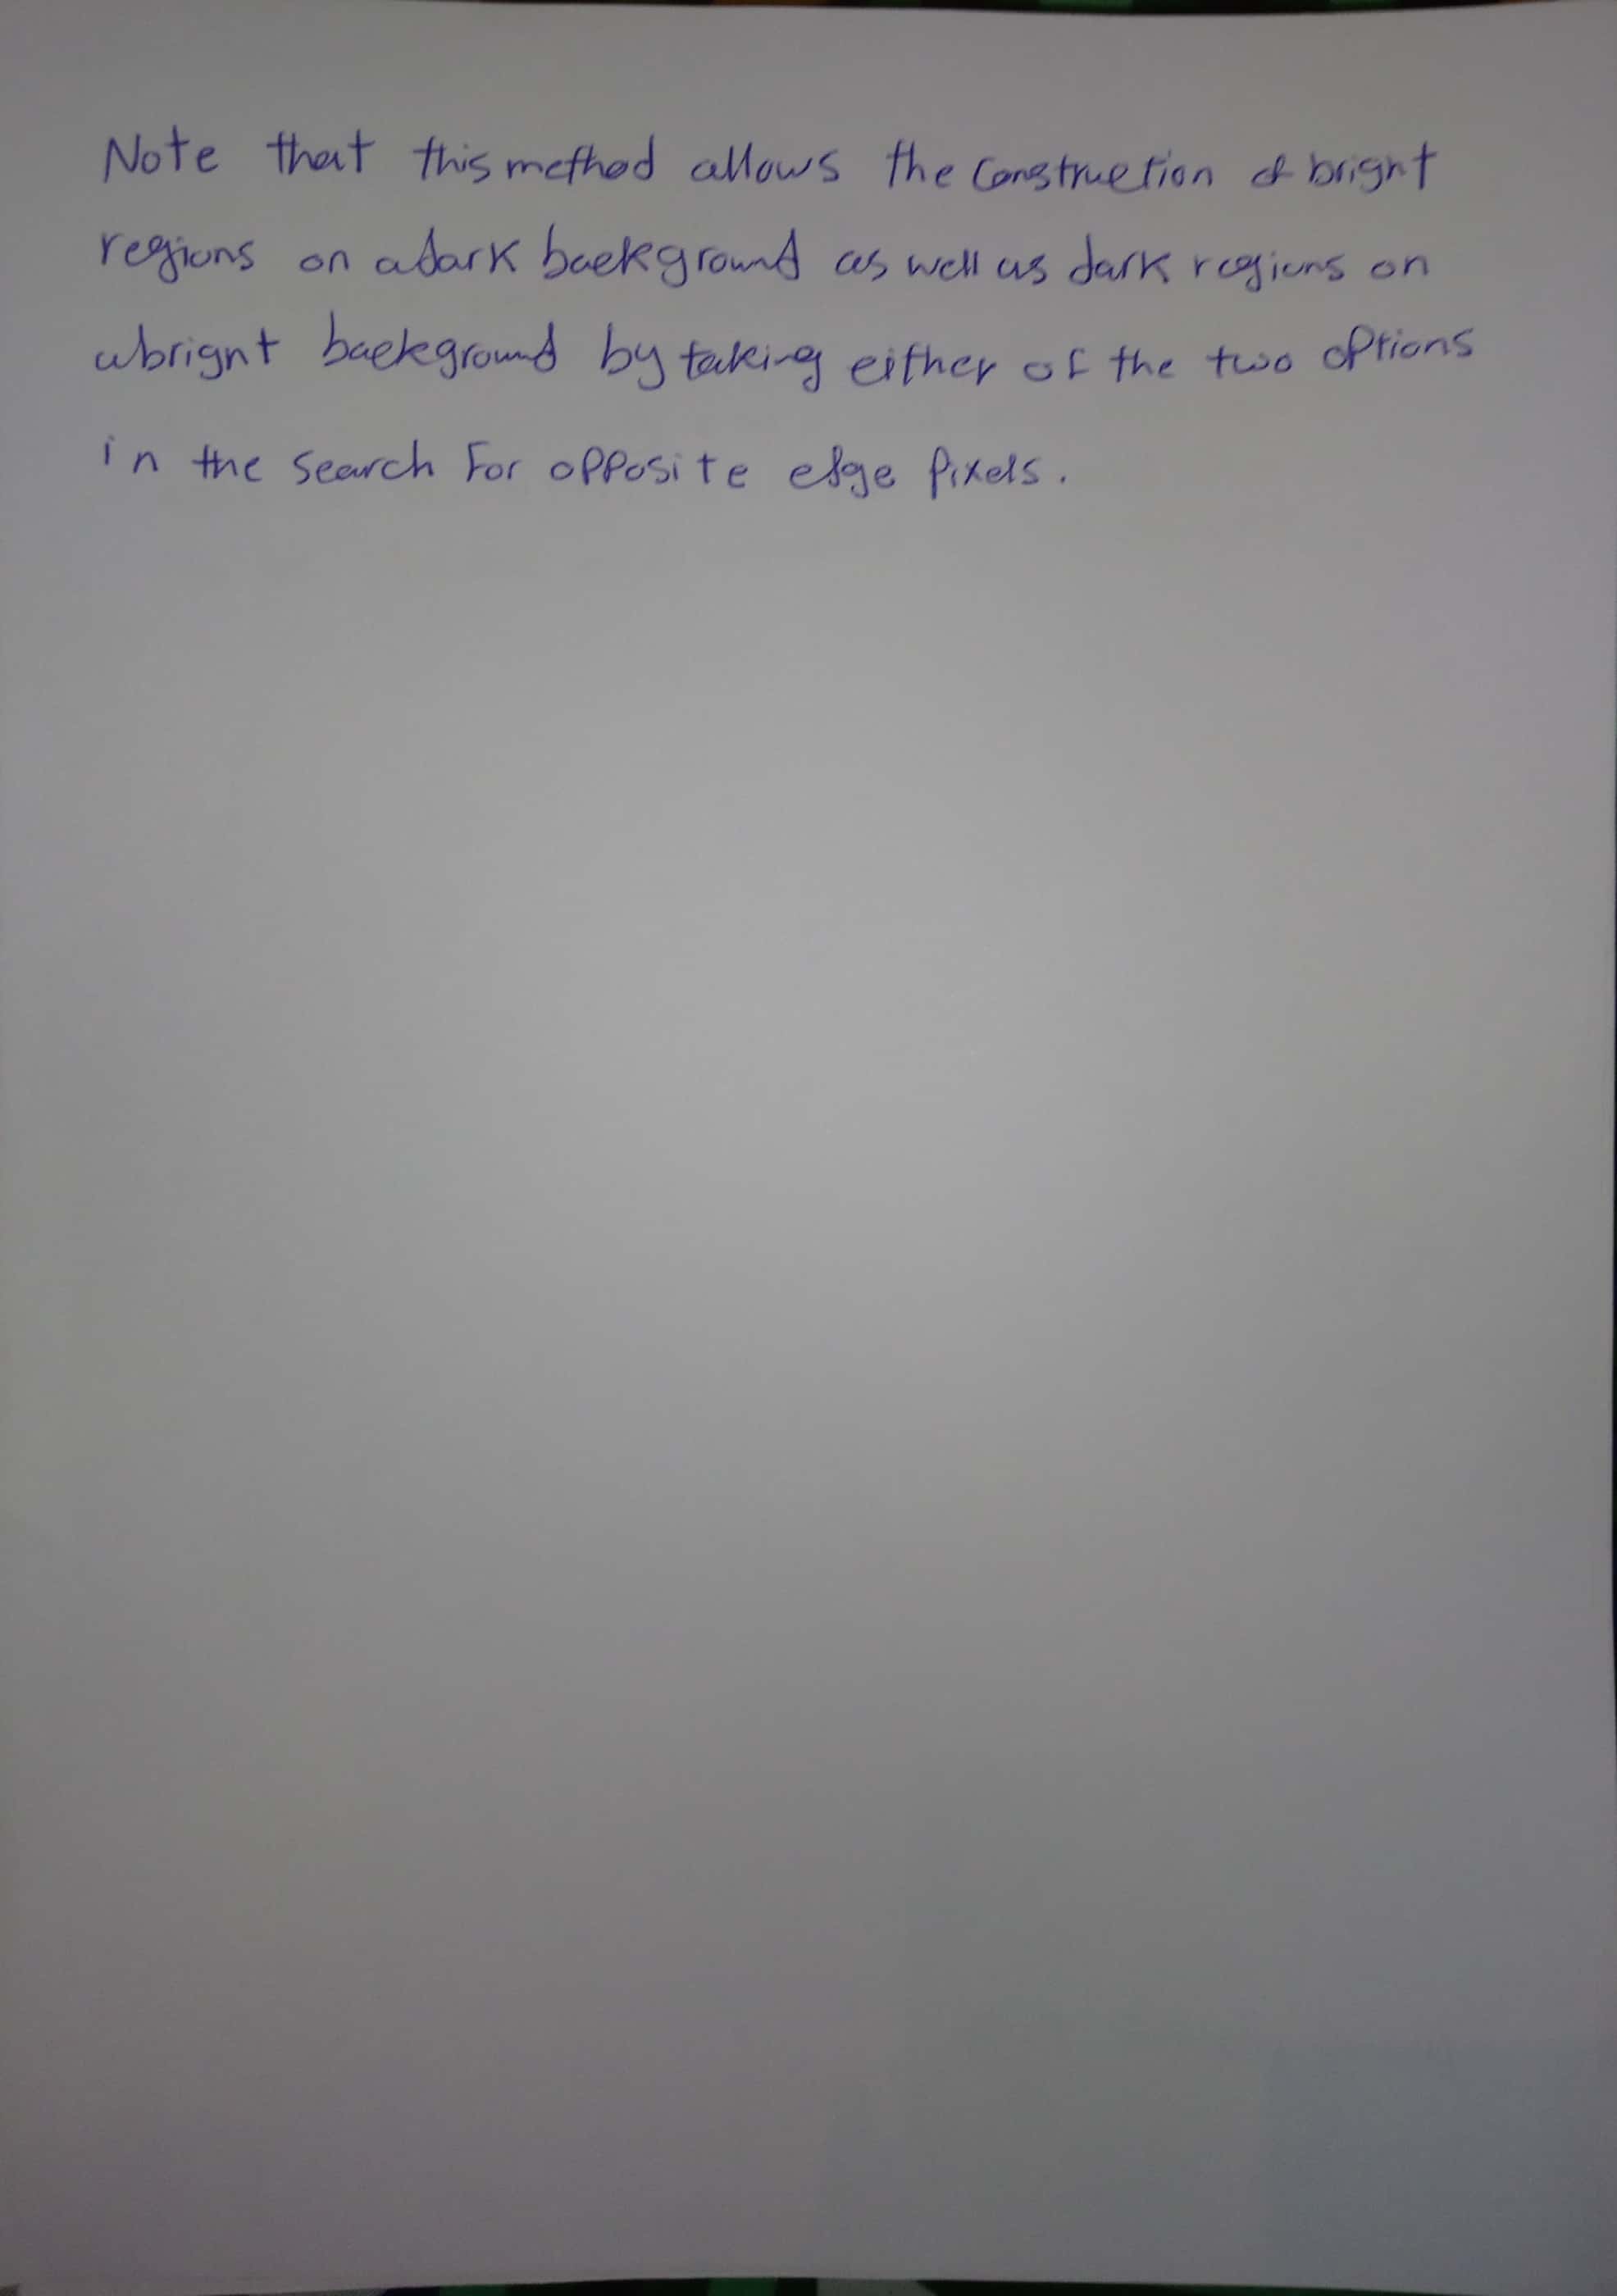 Note that this method allows the construction of bright
regions on a dark background as well as dark regions on
a bright background by taking either of the two options
in the search for opposite edge pixels.